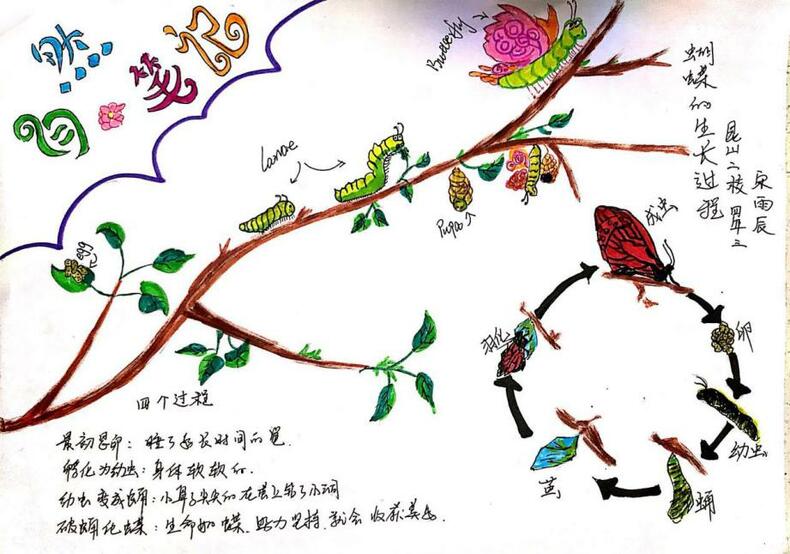 自然笔记
Butterfly
蝴蝶的生长过程
昆山二校 四年三
宋雨辰
Larvae
Pupa
egg
成虫
卵
幼虫
蛹
茧
羽化
四个过程
最初是卵：睡了好长时间的觉.
孵化为幼虫：身体软软的.
幼虫变成蛹：小鼻子尖尖的在茧上钻了小洞
破蛹化蝶：生命如蝶.努力坚持.就会收获美好.